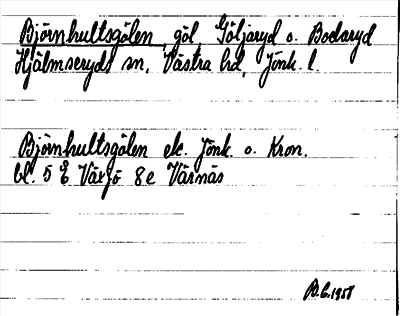 Björnhultsgölen, göl, Göljaryd o. Bodaryd
Hjälmseryds sn, Västra hd, Jönk. l.
Björnhultsgölen ek. Jönk. o. Kron.
bl. 5 E Växjö 8e Värnäs